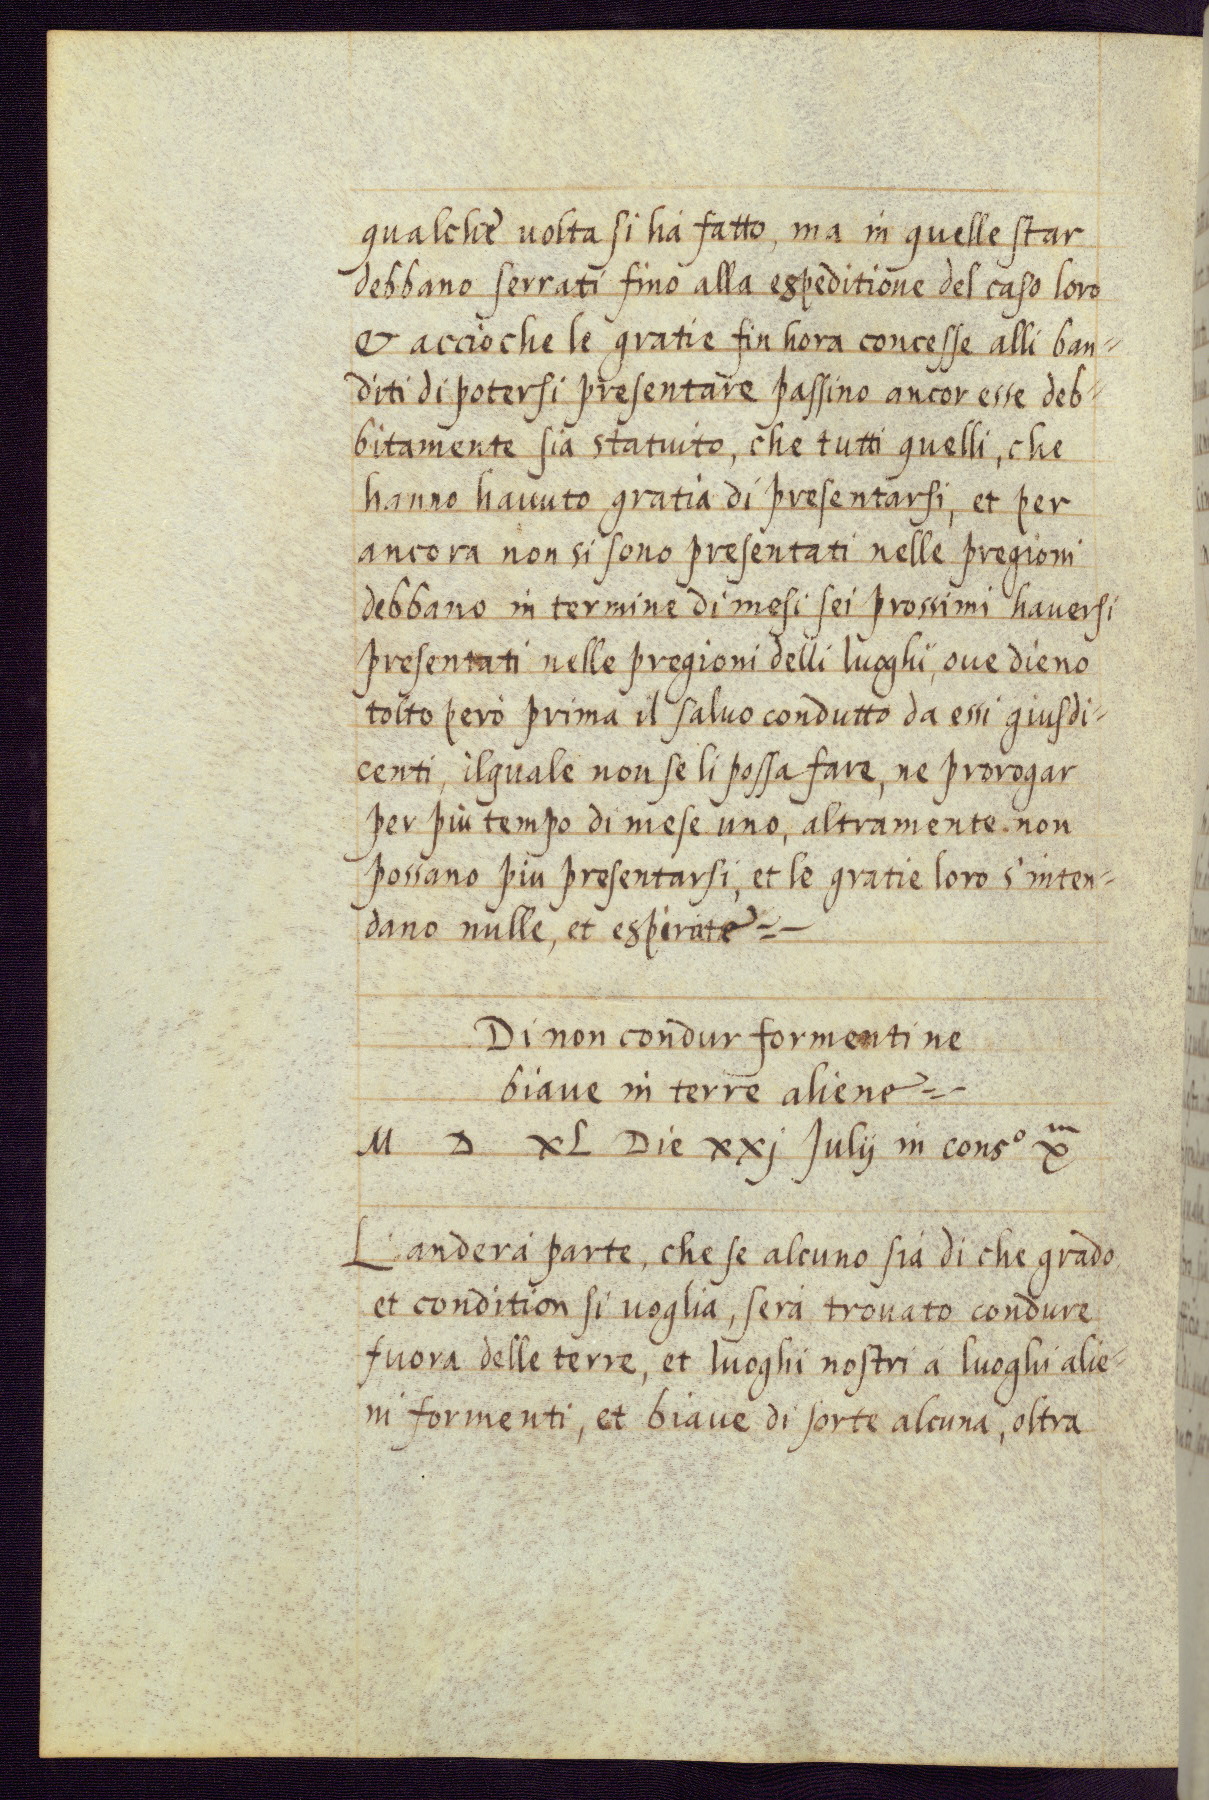 qualche uolta si há fatto, ma in quelle star
debbano serrati fino alla espeditione del caso loro
& acciò che le gratie fin hora concesse alli ban=
diti di potersi presentare passino ancor esse deb=
bitamente sia statuito, che tutti quelli, che
hanno hauuto gratia di presentarsi, et per
ancora non si sono presentati nelle pregioni
debbano in termine di mesi sei prossimi hauersi
presentati nelle pregioni delli luoghi, oue dieno
tolto però prima il saluo condutto da essi giusdi=
centi, ilquale non se li possa fare, ne prorogar
per più tempo di mese uno, altramente non
possano piu presentarsi, et le gratie loro s'inten=
dano nulle, et espirate =—
Di non condur formenti ne
biaue in terre aliene =—
M D XL Die xxj Julij in consº Xᵐ
L'anderá parte, che se alcuno siá di che grado,
et condition si uoglia, será trouato condure
fuora delle terre, et luoghi nostri á luoghi alie=
ni formenti, et biaue di sorte alcuna, oltra